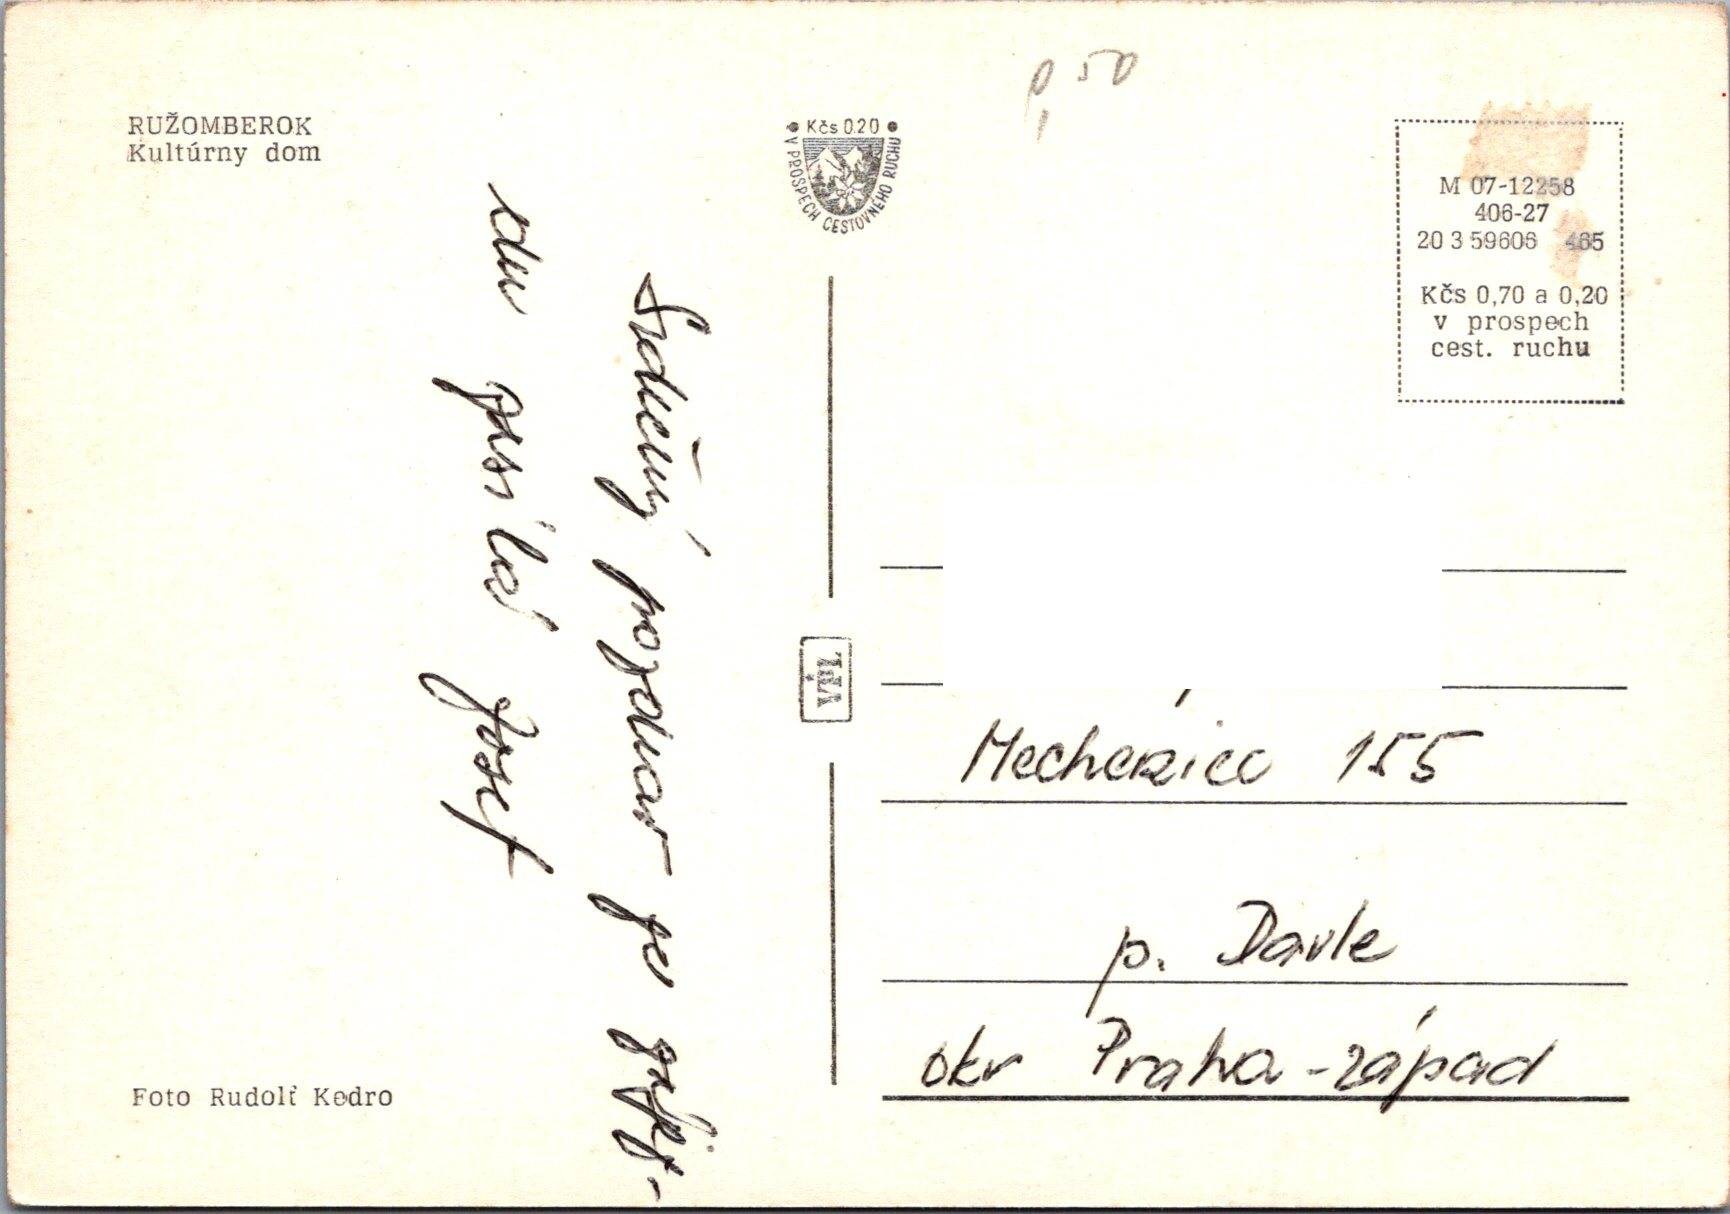 RUŽOMBEROK
Kultúrny dom
Srdečný pozdrav ze
posílá Josef
Foto Rudolf Kedro
Kčs 0.20
V PROSPECH CESTOVNÉHO RUCHU
VPL
0,50
M 07-12258
406-27
20 3 59606 465
Kčs 0,70 a 0,20
v prospech
cest. ruchu
155
p. Davle
okr Praha-západ